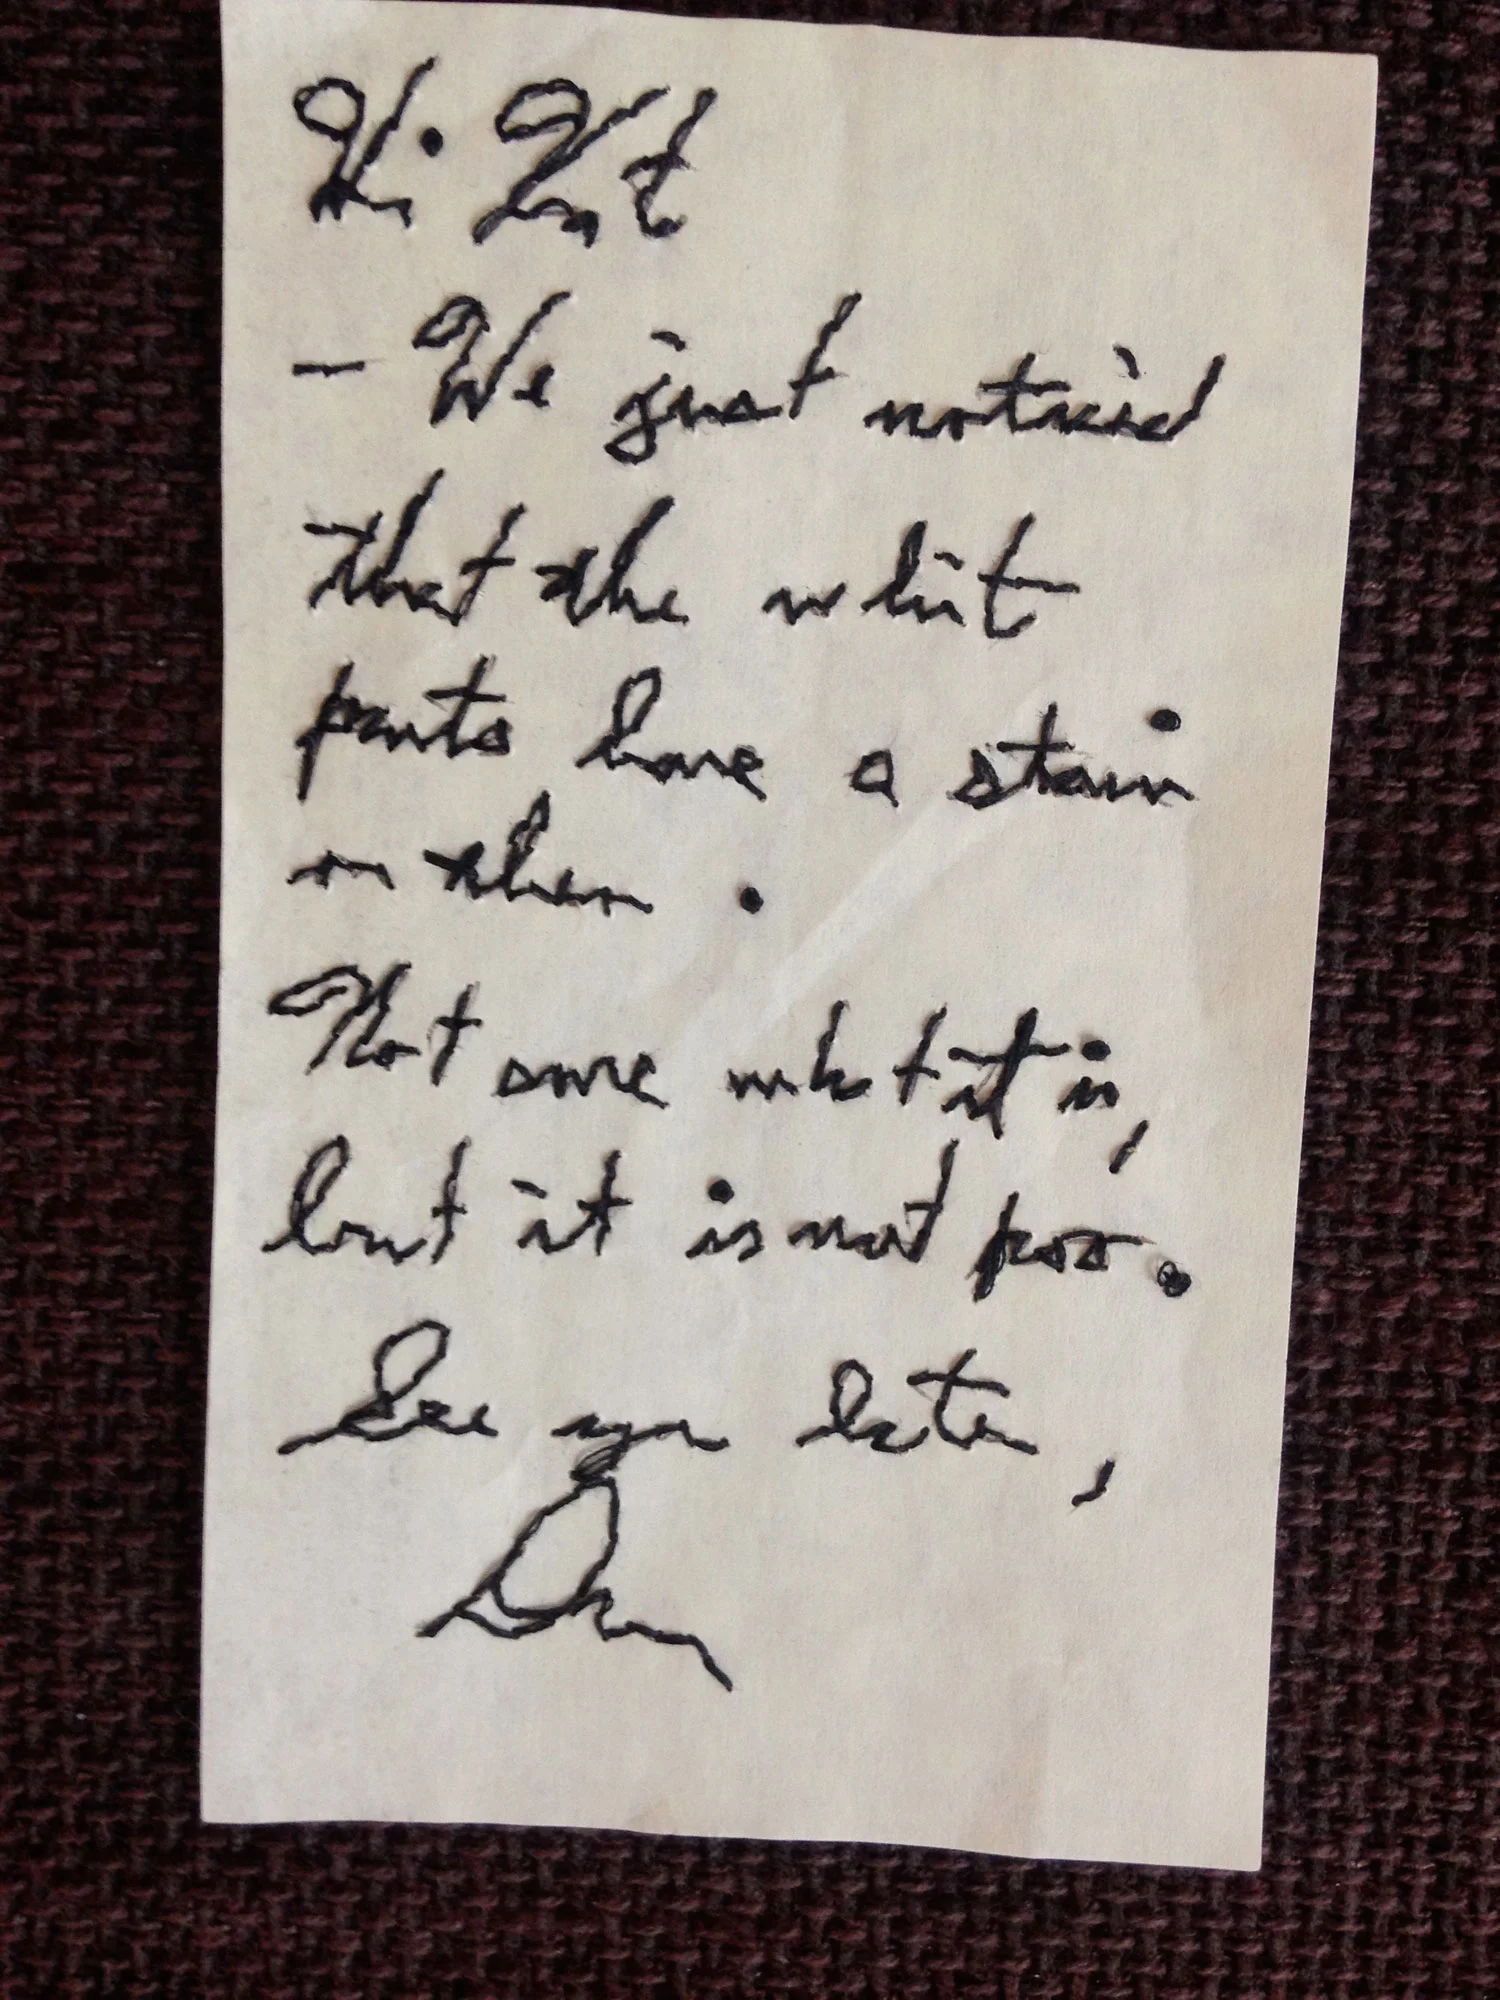 Hi Kat
- We just noticed
that the white
pants have a stain
on them.
Not sure what it is,
but it is not poo.
See ya later,